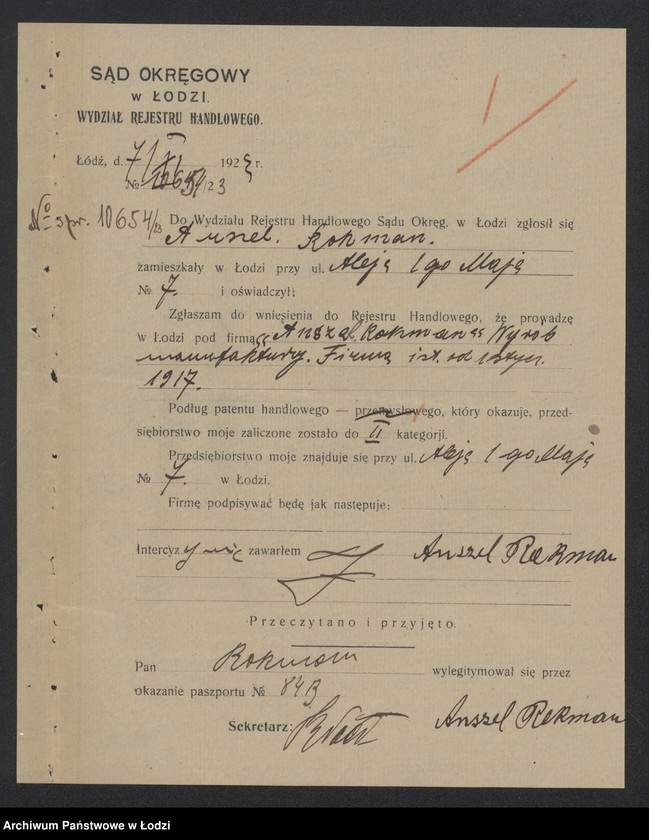 SĄD OKRĘGOWY
w ŁODZI.
WYDZIAŁ REJESTRU HANDLOWEGO.
Łódź, d. 7/ 1923 r.
№ 10654/23
№ spr. 10654/23
Do Wydziału Rejestru Handlowego Sądu Okręg. w Łodzi zgłosił się
Anszel. Rokman.
zamieszkały w Łodzi przy ul. Aleja 1 go Maja
№ 7. i oświadczył:
Zgłaszam do wniesienia do Rejestru Handlowego, że prowadzę
w Łodzi pod firmą „Anszel Rokman" Wyrób
manufaktury. Firma ist. od 1 stycz.
1917.
Podług patentu handlowego — przemysłowego, który okazuje, przed-
siębiorstwo moje zaliczone zostało do II kategorji.
Przedsiębiorstwo moje znajduje się przy ul. Aleja 1 go Maja
№ 7. w Łodzi.
Firmę podpisywać będę jak następuje:
Intercyzy nie zawarłem
Anszel Rokman
Przeczytano i przyjęto.
Pan Rokman wylegitymował się przez
okazanie paszportu №
Sekretarz:
Anszel Rokman
Archiwum Państwowe w Łodzi